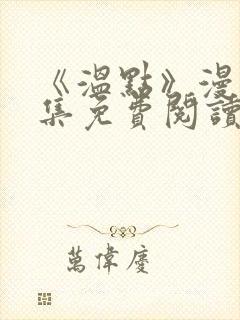 《溫點》漫
集免費閱讀
萬偉慶